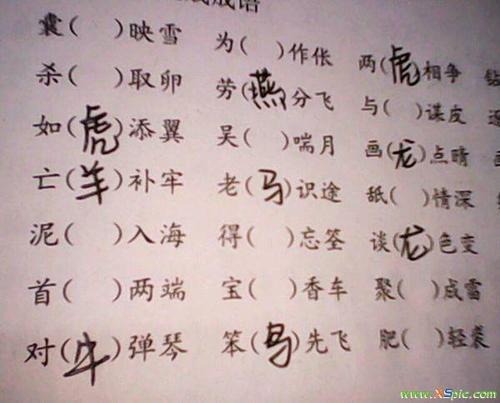 成语
囊( )映雪 为( )作伥 两(虎)相争
杀( )取卵 劳(燕)分飞 与( )谋皮
如(虎)添翼 吴( )喘月 画(龙)点睛
亡(羊)补牢 老(马)识途 舐( )情深
泥( )入海 得( )忘筌 谈(龙)色变
首( )两端 宝( )香车 聚( )成雷
对(牛)弹琴 笨(鸟)先飞 肥( )轻裘
www.XSpic.com